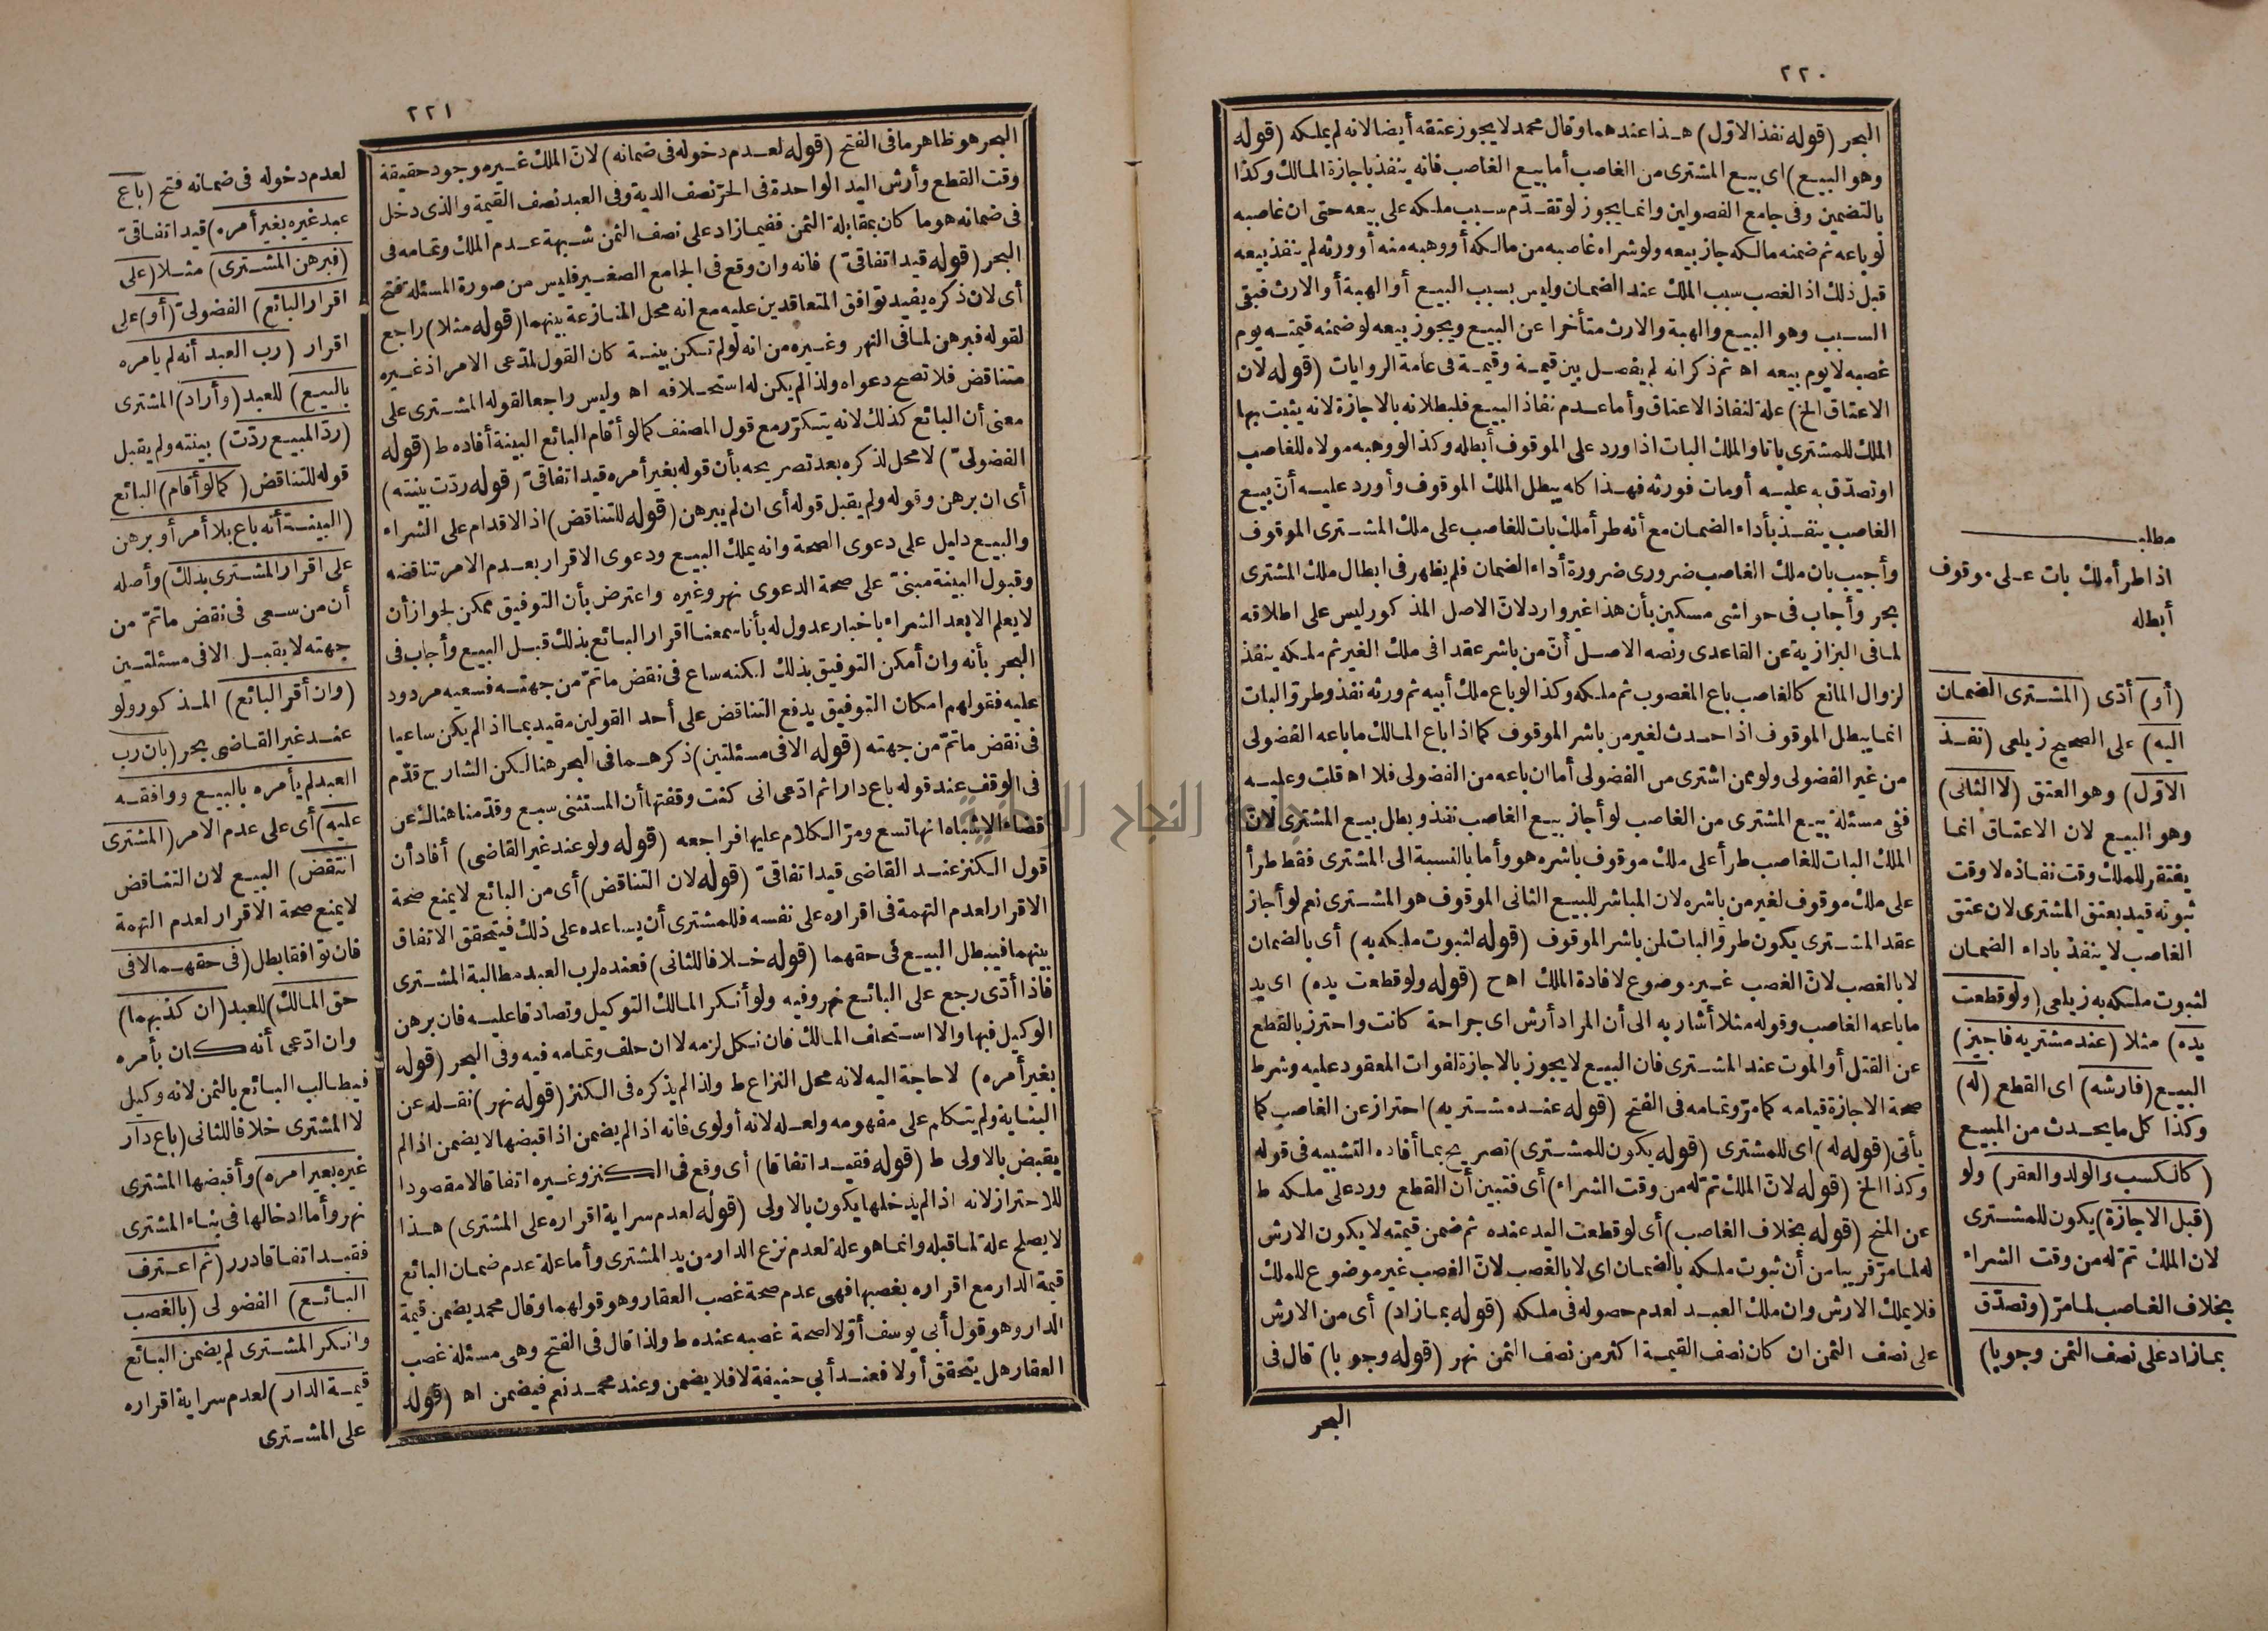 ٢٢٠
البحر (قوله نفذ الاوّل) هذا عندهما وقال محمد لا يجوز عتقه أيضا لانه لم يملكه (قوله
وهو البيع) اى بيع المشترى من الغاصب أما بيع الغاصب فانه ينفذ باجازة المالك وكذا
بالتضمين وفى جامع الفصولين وانما يجوز لو تقدّم سبب ملكه على بيعه حتى ان غاصبه
لو باعه ثم ضمنه مالكه جاز بيعه ولو شراه غاصبه من مالكه أو وهبه منه أو ورثه لم ينفذ بيعه
قبل ذلك اذ الغصب سبب الملك عند الضمان وليس بسبب البيع أو الهبة أو الارث فبقى
السبب وهو البيع والهبة والارث متأخرا عن البيع ويجوز بيعه لو ضمنه قيمته يوم
غصبه لا يوم بيعه اه ثم ذكر انه لم يفصل بين قيمة وقيمة فى عامة الروايات (قوله لان
الاعتاق الخ) علة لنفاذ الاعتاق وأما عدم نفاذ البيع فلبطلانه بالاجازة لانه يثبت بها
الملك للمشترى باتا والملك البات اذا ورد على الموقوف أبطله وكذا لو وهبه مولاه للغاصب
او تصدّق به عليه أو مات فورثه فهذا كله يبطل الملك الموقوف وأورد عليه أن بيع
الغاصب ينفذ بأداء الضمان مع أنه طرأ ملك بات للغاصب على ملك المشترى الموقوف
وأجيب بان ملك الغاصب ضرورى ضرورة أداء الضمان فلم يظهر فى ابطال ملك المشترى
بحر وأجاب فى حواشى مسكين بأن هذا غير وارد لان الاصل المذكور ليس على اطلاقه
لما فى البزازية عن القاعدى ونصه الاصل أن من باشر عقدا فى ملك الغير ثم ملكه ينفذ
لزوال المانع كالغاصب باع المغصوب ثم ملكه وكذا لو باع ملك أبيه ثم ورثه نفذ وطروّ البات
انما يبطل الموقوف اذا حدث لغير من باشر الموقوف كما اذا باع المالك ما باعه الفضولى
من غير الفضولى ولو ممن اشترى من الفضولى أما ان باعه من الفضولى فلا اه قلت وعليه
ففى مسئلة بيع المشترى من الغاصب لو أجاز بيع الغاصب نفذ وبطل بيع المشترى لان
الملك البات للغاصب طرأ على ملك موقوف باشره هو وأما بالنسبة الى المشترى فقط طرأ
على ملك موقوف لغير من باشره لان المباشر للبيع الثانى الموقوف هو المشترى نعم لو أجاز
عقد المشترى يكون طروّ البات لمن باشر الموقوف (قوله لثبوت ملكه به) أى بالضمان
لا بالغصب لان الغصب غير موضوع لافادة الملك اه ح (قوله ولو قطعت يده) اى يد
ما باعه الغاصب وقوله مثلا أشار به الى أن المراد أرش اى جراحة كانت واحترز بالقطع
عن القتل أو الموت عند المشترى فان البيع لا يجوز بالاجازة لفوات المعقود عليه وشرط
صحة الاجازة قيامه كما مرّ وتمامه فى الفتح (قوله عند مشتريه) احتراز عن الغاصب كما
يأتى (قوله له) اى للمشترى (قوله يكون للمشترى) تصريح بما أفاده التشبيه فى قوله
وكذا الخ (قوله لان الملك تمّ له من وقت الشراء) أى فتبين أن القطع ورد على ملكه ط
عن المنح (قوله بخلاف الغاصب) أى لو قطعت اليد عنده ثم ضمن قيمته لا يكون الارش
له لما مرّ قريبا من أن ثبوت ملكه بالضمان اى لا بالغصب لان الغصب غير موضوع للملك
فلا يملك الارش وان ملك العبد لعدم حصوله فى ملكه (قوله بما زاد) أى من الارش
على نصف الثمن ان كان نصف القيمة اكثر من نصف الثمن نهر (قوله وجوبا) قال فى
البحر
مطلب
اذا طرأ ملك بات على موقوف
أبطله
(أو) أدّى (المشترى الضمان
اليه) على الصحيح زيلعى (نفذ
الاوّل) وهو العتق (لا الثانى)
وهو البيع لان الاعتاق انما
يفتقر للملك وقت نفاذه لا وقت
ثبوته قيد بعتق المشترى لان عتق
الغاصب لا ينفذ باداء الضمان
لثبوت ملكه به زيلعى (ولو قطعت
يده) مثلا (عند مشتريه فاجيز)
البيع (فارشه) اى القطع (له)
وكذا كل ما يحدث من المبيع
(كالكسب والولد والعقر) ولو
(قبل الاجازة) يكون للمشترى
لان الملك تمّ له من وقت الشراء
بخلاف الغاصب لما مرّ (وتصدّق
بما زاد على نصف الثمن وجوبا)
٢٢١
البحر هو ظاهر ما فى الفتح (قوله لعدم دخوله فى ضمانه) لان الملك غير موجود حقيقة
وقت القطع وأرش اليد الواحدة فى الحرّ نصف الدية وفى العبد نصف القيمة والذى دخل
فى ضمانه هو ما كان بمقابلة الثمن ففيما زاد على نصف الثمن شبهة عدم الملك وتمامه فى
البحر (قوله قيد اتفاقىّ) فانه وان وقع فى الجامع الصغير فليس من صورة المسئلة فتح
أى لان ذكره يفيد توافق المتعاقدين عليه مع انه محل المنازعة بينهما (قوله مثلا) راجع
لقوله فبرهن لما فى النهر وغيره من انه لو لم تكن بينة كان القول لمدّعى الامر اذ غيره
متناقض فلا تصح دعواه ولذا لم يكن له استحلافه اه وليس راجعا لقوله المشترى على
معنى أن البائع كذلك لانه يتكرّر مع قول المصنف كما لو أقام البائع البينة أفاده ط (قوله
الفضولىّ) لا محل لذكره بعد تصريحه بأن قوله بغير أمره قيد اتفاقىّ (قوله ردّت بينته)
أى ان برهن وقوله ولم يقبل قوله أى ان لم يبرهن (قوله للتناقض) اذ الاقدام على الشراء
والبيع دليل على دعوى الصحة وانه يملك البيع ودعوى الاقرار بعدم الامر تناقضه
وقبول البينة مبنىّ على صحة الدعوى نهر وغيره واعترض بأن التوفيق ممكن لجواز أن
لا يعلم الا بعد الشراء باخبار عدول له بأنا سمعنا اقرار البائع بذلك قبل البيع وأجاب فى
البحر بأنه وان أمكن التوفيق بذلك لكنه ساع فى نقض ما تمّ من جهته فسعيه مردود
عليه فقولهم امكان التوفيق يدفع التناقض على أحد القولين مقيد بما اذا لم يكن ساعيا
فى نقض ما تمّ من جهته (قوله الا فى مسئلتين) ذكرهما فى البحر هنا لكن الشارح قدّم
فى الوقف عند قوله باع دارا ثم ادّعى انى كنت وقفتها أن المستثنى سبع وقدّمنا هناك عن
قضاء الاشباه انها تسع ومرّ الكلام عليها فراجعه (قوله ولو عند غير القاضى) أفاد أن
قول الكنز عند القاضى قيد اتفاقىّ (قوله لان التناقض) أى من البائع لا يمنع صحة
الاقرار لعدم التهمة فى اقراره على نفسه فللمشترى أن يساعده على ذلك فيتحقق الاتفاق
بينهما فيبطل البيع فى حقهما (قوله خلافا للثانى) فعنده لرب العبد مطالبة المشترى
فاذا أدّى رجع على البائع نهر وفيه ولو أنكر المالك التوكيل وتصادقا عليه فان برهن
الوكيل فبها والا استحلف المالك فان نكل لزمه لا ان حلف وتمامه فيه وفى البحر (قوله
بغير أمره) لا حاجة اليه لانه محل النزاع ط ولذا لم يذكره فى الكنز (قوله نهر) نقله عن
البناية ولم يتكلم على مفهومه ولعله لانه أولوى فانه اذا لم يضمن اذا قبضها لا يضمن اذا لم
يقبض بالاولى ط (قوله فقيد اتفاقا) أى وقع فى الكنز وغيره اتفاقا لا مقصودا
للاحتراز لانه اذا لم يدخلها يكون بالاولى (قوله لعدم سراية اقراره على المشترى) هذا
لا يصلح علة لما قبله وانما هو علة لعدم نزع الدار من يد المشترى وأما علة عدم ضمان البائع
قيمة الدار مع اقراره بغصبها فهى عدم صحة غصب العقار وهو قولهما وقال محمد يضمن قيمة
الدار وهو قول أبى يوسف أوّلا لصحة غصبه عنده ط ولذا قال فى الفتح وهى مسئلة غصب
العقار هل يتحقق أولا فعند أبى حنيفة لا فلا يضمن وعند محمد نعم فيضمن اه (قوله
لعدم دخوله فى ضمانه فتح (باع
عبد غيره بغير أمره) قيد اتفاقىّ
(فبرهن المشترى) مثلا (على
اقرار البائع) الفضولىّ (أو) على
اقرار (رب العبد أنه لم يامره
بالبيع) للعبد (وأراد) المشترى
(ردّ المبيع ردّت) بينته ولم يقبل
قوله للتناقض (كما لو أقام) البائع
(البينة أنه باع بلا أمر أو برهن
على اقرار المشترى بذلك) وأصله
أن من سعى فى نقض ما تمّ من
جهته لا يقبل الا فى مسئلتين
(وان أقر البائع) المذكور ولو
عند غير القاضى بحر (بان رب
العبد لم يأمره بالبيع ووافقه
عليه) أى على عدم الامر (المشترى
انتقض) البيع لان التناقض
لا يمنع صحة الاقرار لعدم التهمة
فان توافقا بطل (فى حقهما لا فى
حق المالك) للعبد (ان كذبهما)
وان ادّعى أنه كان بأمره
فيطالب البائع بالثمن لانه وكيل
لا المشترى خلافا للثانى (باع دار
غيره بغير امره) وأقبضها المشترى
نهر وأما ادخالها فى بناء المشترى
فقيد اتفاقا درر (ثم اعترف
البائع) الفضولى (بالغصب
وانكر المشترى لم يضمن البائع
قيمة الدار) لعدم سراية اقراره
على المشترى